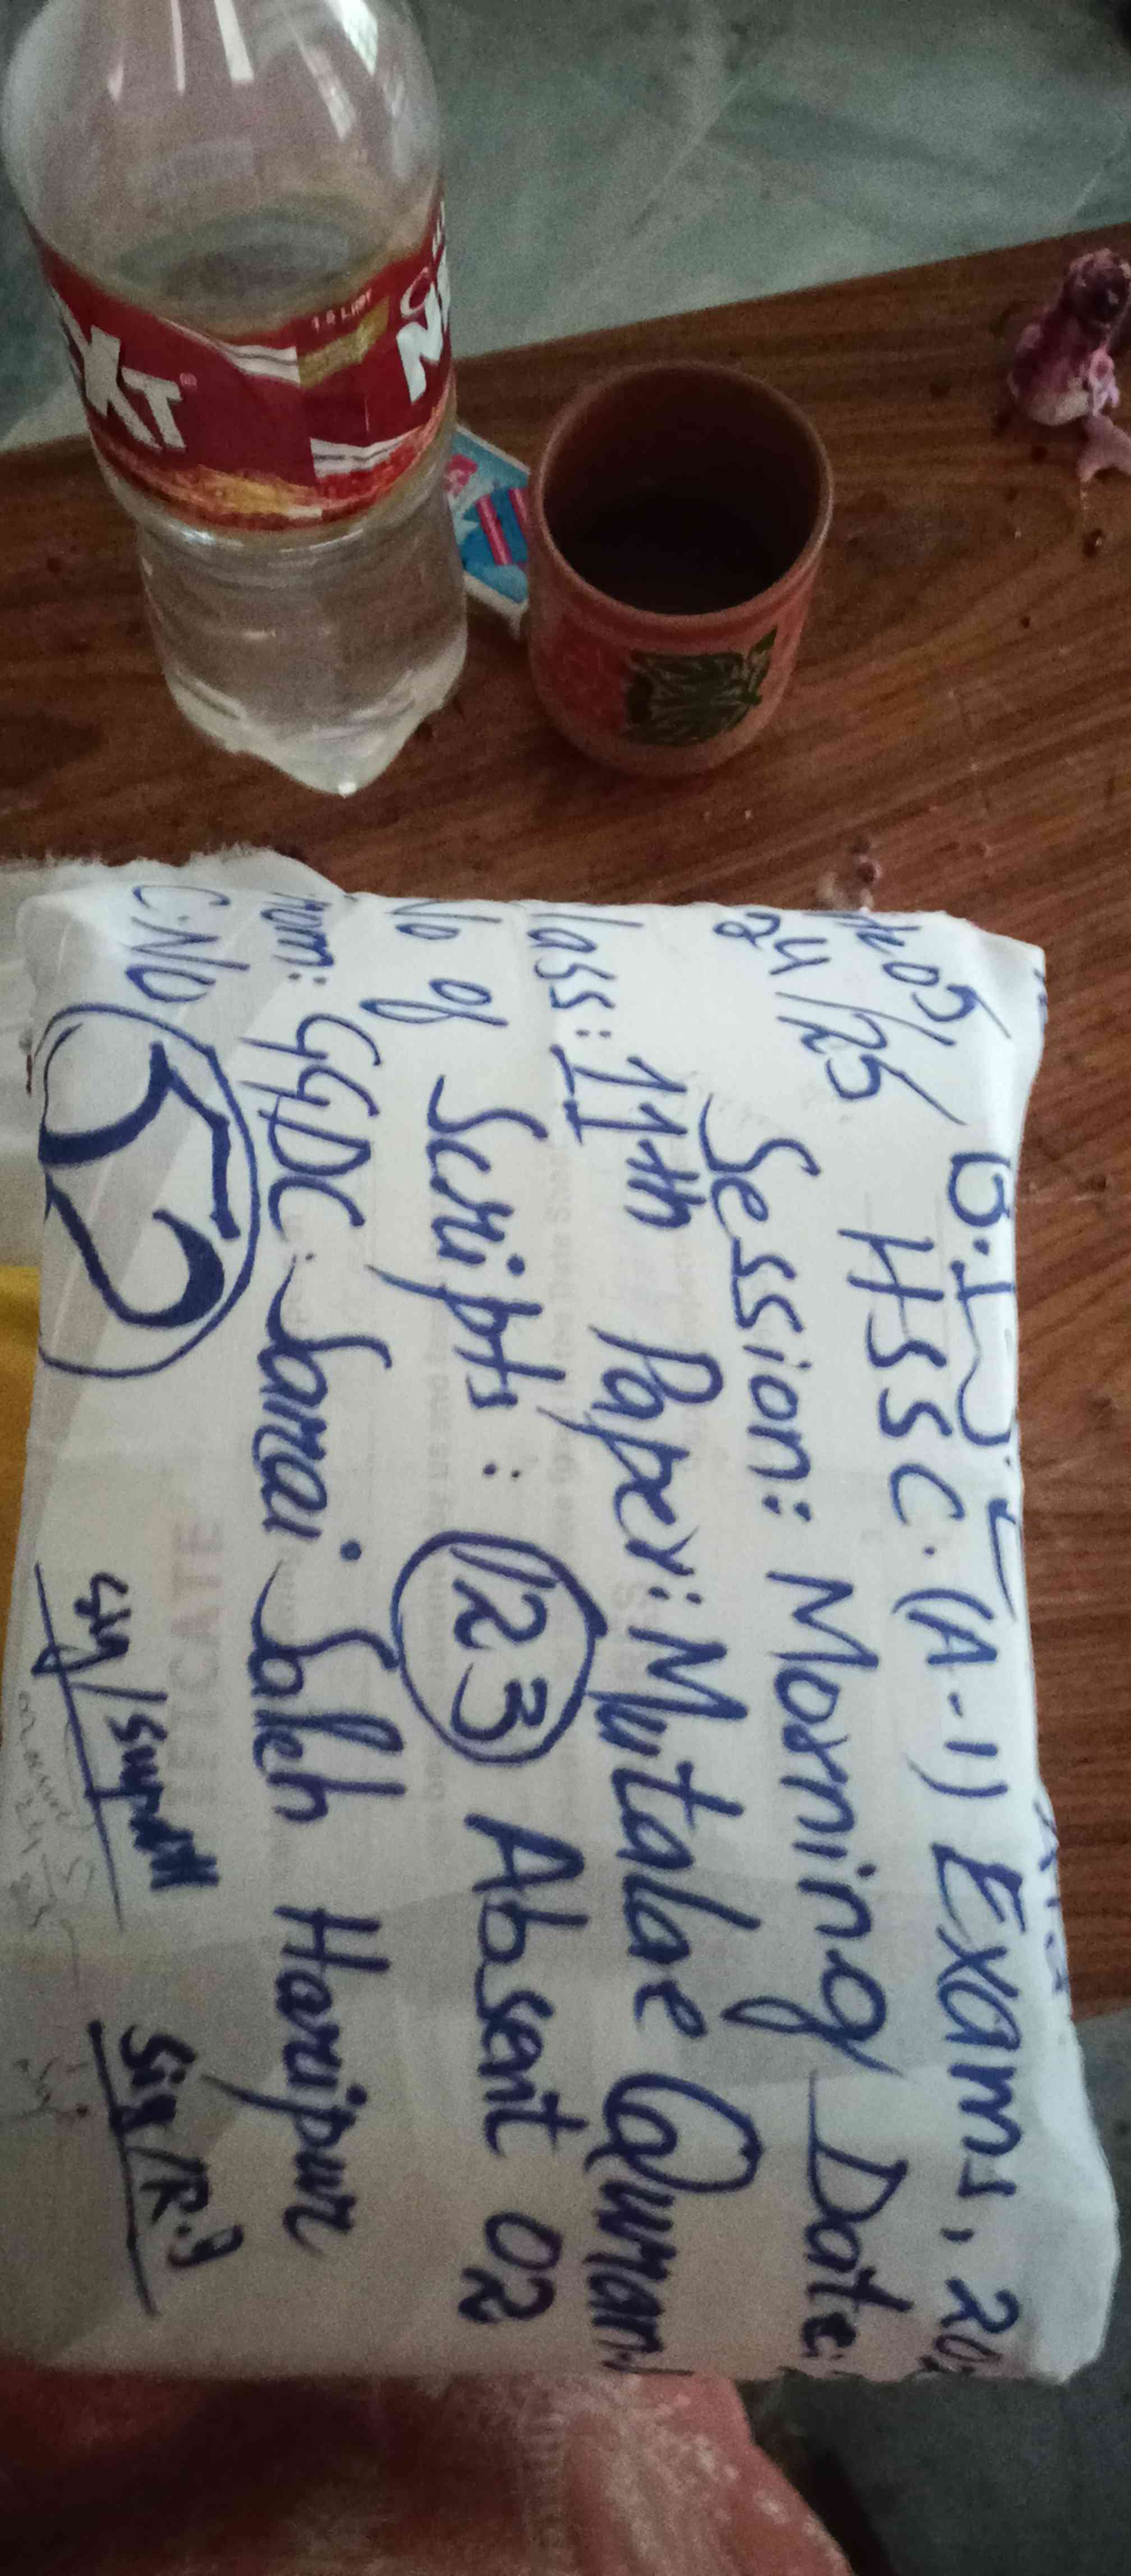 B.I.S.E
HSSC.(A-1) Exams, 20
Session: Morning Date:
24/25
lass: 11th Paper: Mutalae Quran
No of Scripts: 123 Absent 02
rom: GGDC Sarai Saleh Haripur
C.No 52
Sig/Supdtt Sig/R.I
XT
1.5 LITER
N